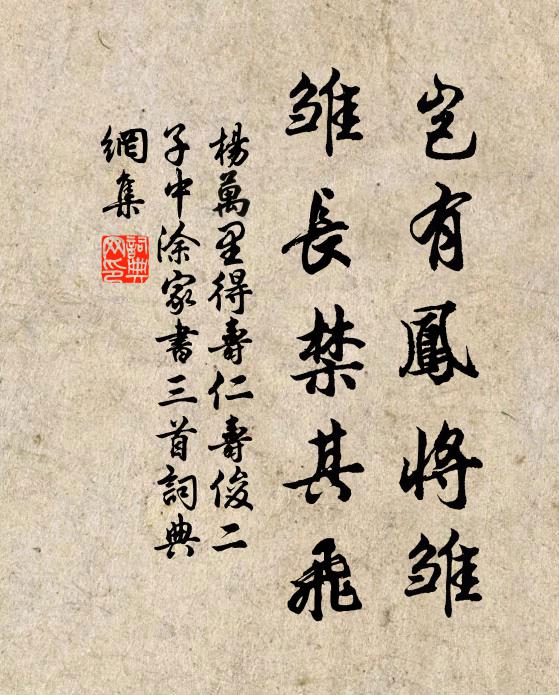 豈有鳳將雛
雛長禁其飛
楊萬里得壽仁壽俊二
子中涂家書三首詞典
網集
詞典網印